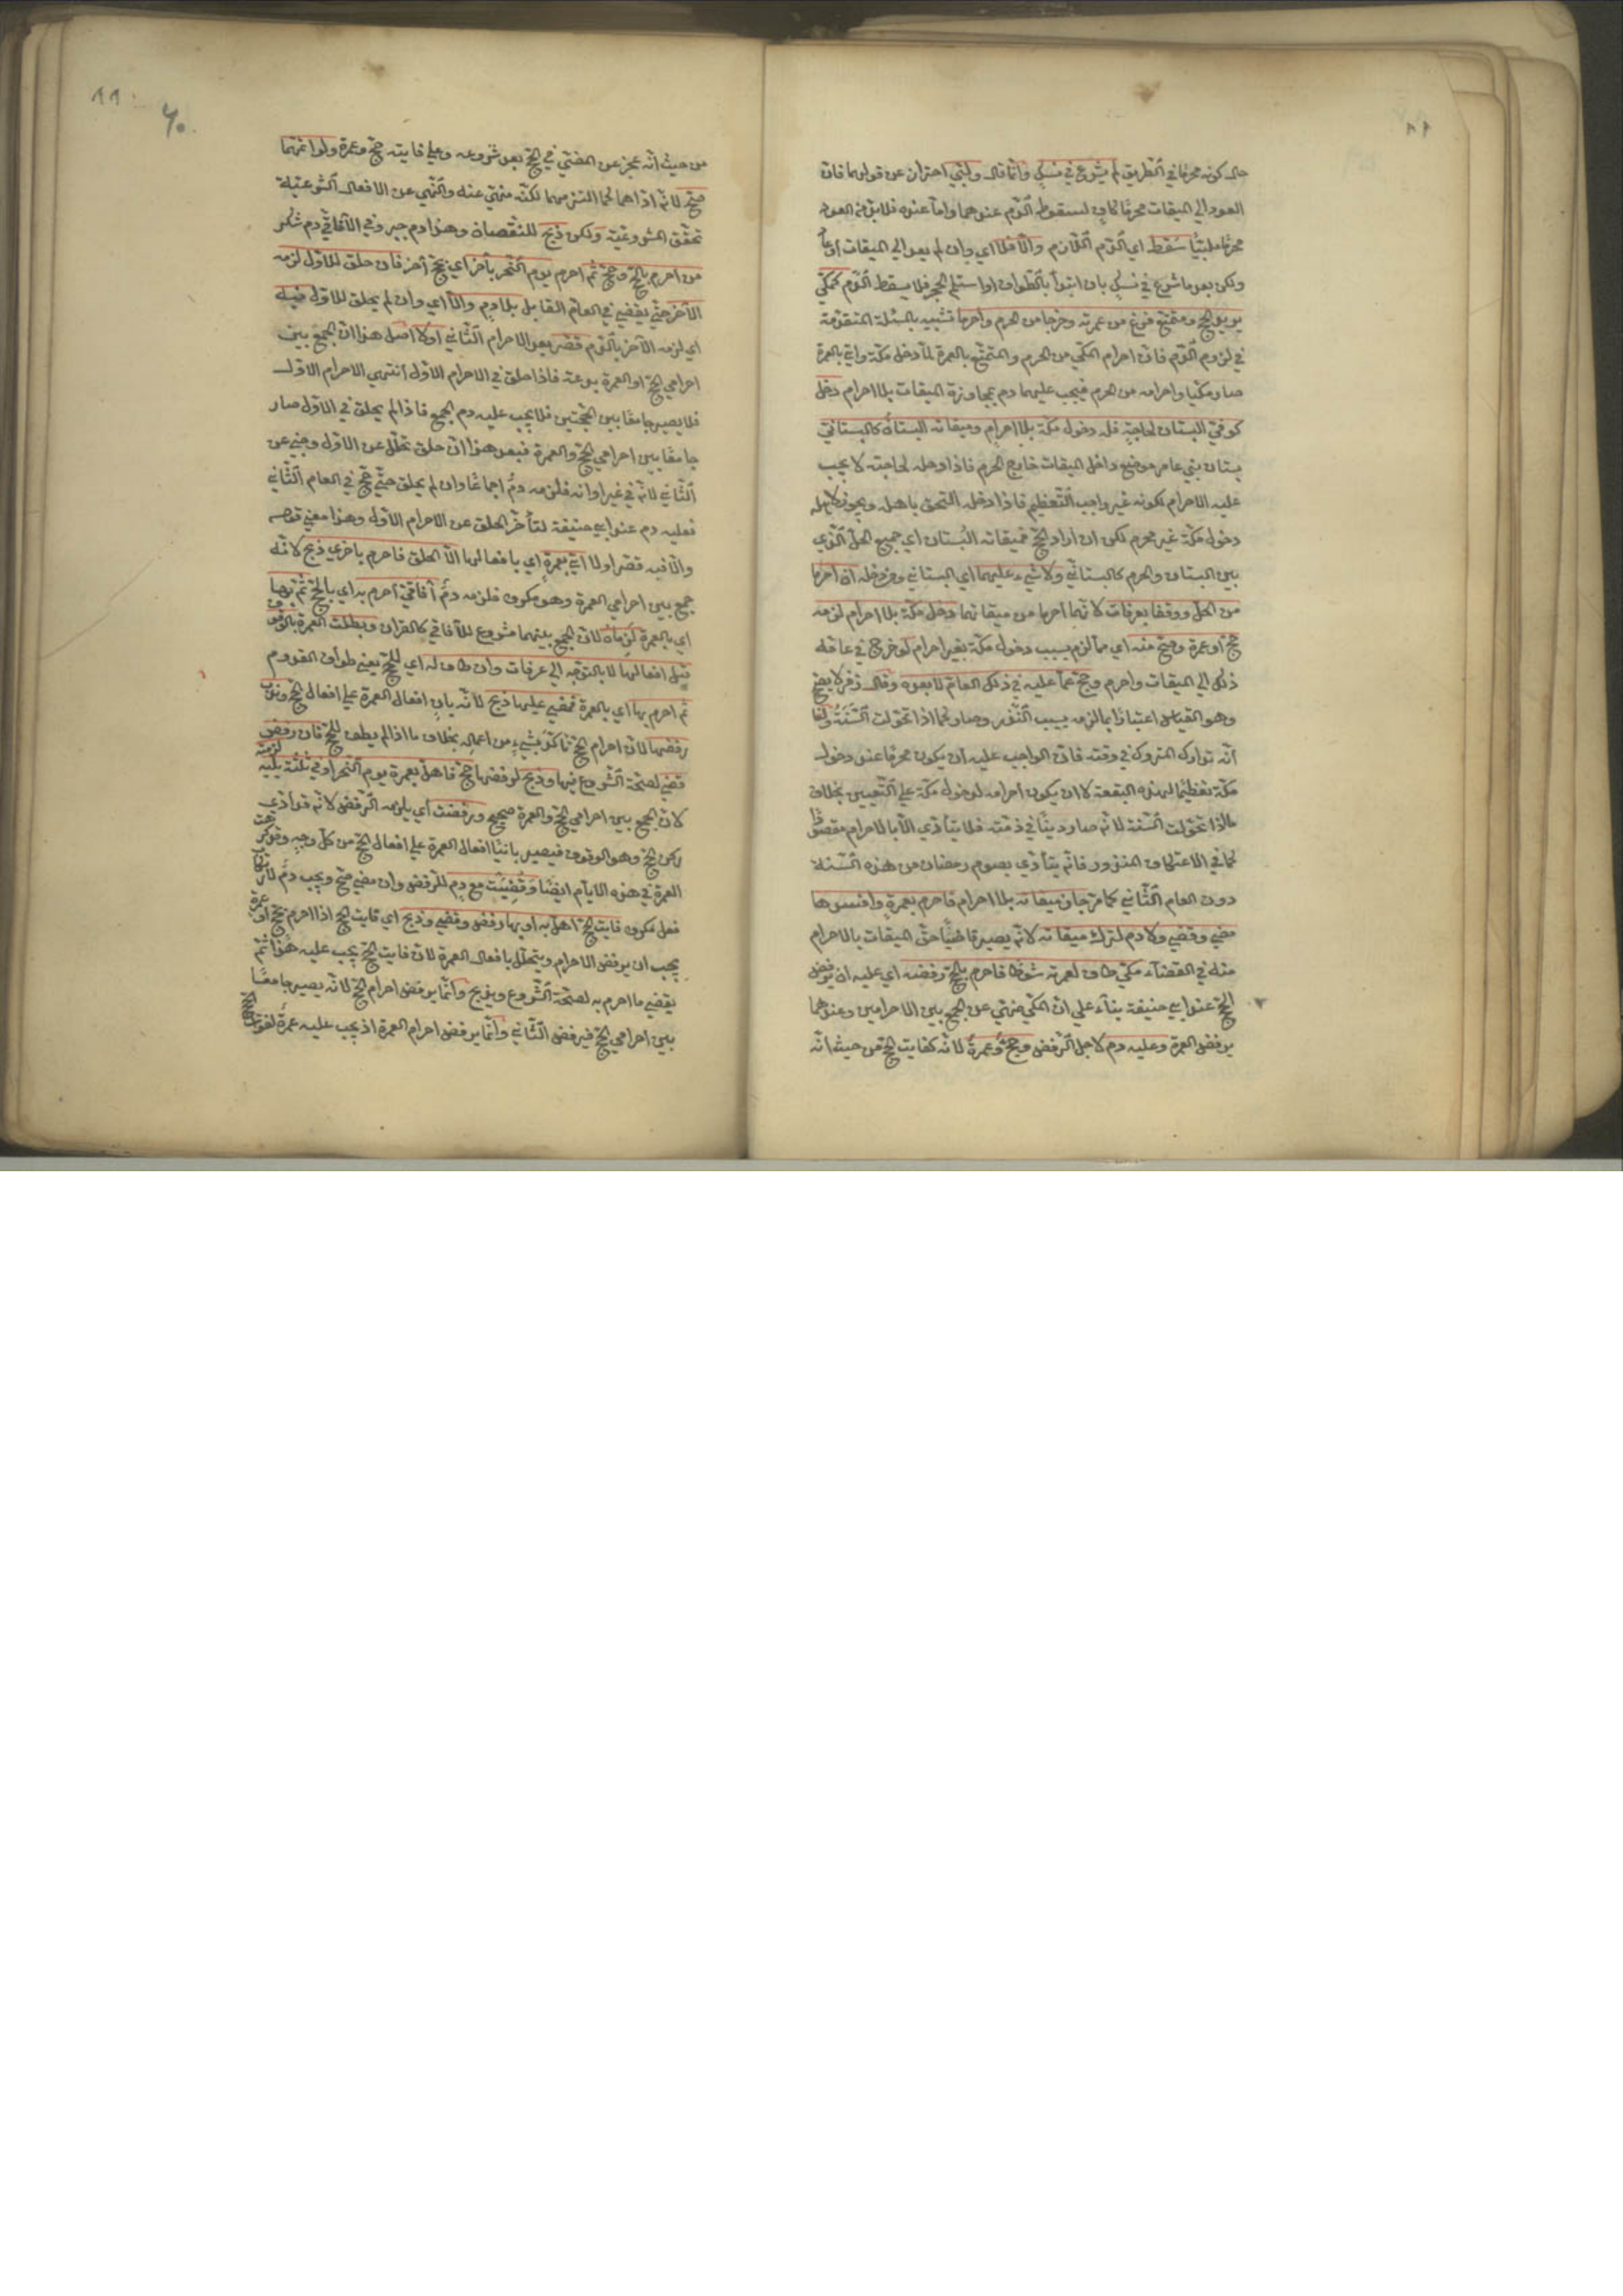 حال كونه محرمًا في الطريق لم يشرع في نسك وانما قال ولبّي احتراز عن قولهما فان
العود الي الميقات محرمًا كافٍ لسقوط الدّم عندهما واما عنده فلا بدّ من العود
محرمًا ملبّيًا سقط اي الدّم اللّازم والّا فلا اي وان لم يعد الي الميقات او عاد
ولكن بعد ما شرع في نسك بان ابتدأ بالطواف او استلم الحجر فلا يسقط الدّم كمكّي
يريد الحج ومتمتع فرغ من عمرته وخرجا من الحرم واحرما تشبيه بالمسئلة المتقدّمة
في لزوم الدّم فانّ احرام المكّي من الحرم والمتمتّع بالعمرة لمّا دخل مكّة واتي بالعمرة
صار مكيّا واحرامه من الحرم فيجب عليهما دم بمجاوزة الميقات بلا احرام دخل
كوفيّ البستان لحاجةٍ فله دخول مكّة بلا احرامٍ وميقاته البستان كالبستانيّ
بستان بني عامر موضع داخل الميقات خارج الحرم فاذا دخله لحاجته لا يجب
عليه الاحرام لكونه غير واجب التّعظيم فاذا دخله التحق باهله ويجوز لاهله
دخول مكّة غير محرم لكن ان اراد الحجّ فميقاته البُستان اي جميع الحلّ الّذي
بين البستان والحرم كالبستانيّ ولا شيء عليهما اي البستاني ومن دخله ان احرما
من الحلّ ووقفا بعرفات لانّهما احرما من ميقاتهما دخل مكّة بلا احرام لزمه
حجّ او عمرة وصحّ منه اي ممّا لزم بسبب دخول مكّة بغير احرام لو خرج في عامه
ذلك الي الميقات واحرم وحجّ عمّا عليه في ذلك العام لا بعده وقال زفر لا يصح
وهو القياس اعتبارًا بما لزمه بسبب النّذر وصار كما اذا تحوّلت السَّنَةُ ولنا
انّه تدارك المتروك في وقته فانّ الواجب عليه ان يكون محرمًا عند دخول
مكّة تعظيمًا لهذه البقعة لا ان يكون احرامه لدخول مكّة علي التّعيين بخلاف
ما اذا تحوّلت السّنة لانّه صار دينًا في ذمّته فلا يتأدّي الّا بالاحرام مقصودًا
كما في الاعتكاف المنذور فانّه يتأدّي بصوم رمضان من هذه السّنة
دون العام الثّاني كما مرّ جاوز ميقاته بلا احرام فاحرم بعمرةٍ وافسدها
مضي وقضي ولا دم لترك ميقاته لانّه يصير قاضيًا حقّ الميقات بالاحرام
منه في القضاء مكّي طاف لعمرته شوطًا فاحرم بالحجّ رفضه اي عليه ان يرفض
الحجّ عند ابي حنيفة بناء علي انّ المكّي منهيّ عن الجمع بين الاحرامين وعندهما
يرفض العمرة وعليه دم لاجل الرّفض وحجّ وعمرةٌ لانّه كفايت الحجّ من حيث انّه
من حيث انّه عجز عن المضيّ في الحجّ بعد شروعه وعلي فايته حجّ وعمرة ولو اتمّهما
صحّ لانّه ادّاهما كما التزمهما لكنّه منهيّ عنه والنّهي عن الافعال الشرعيّة
تحقّق المشروعيّة ولكن ذبح للنّقصان وهذا دم جبر وفي الآفاقيّ دم شكر
من احرم بالحجّ وحجّ ثمّ احرم يوم النّحر بآخر اي بحجّ آخر فان حلق للاوّل لزمه
الآخر حتّي يقضي في العام القابل بلا دم والّا اي وان لم يحلق للاوّل فيه
اي لزمه الآخر بالدّم قصّر بعد الاحرام الثّاني او لا اصل هذا انّ الجمع بين
احرامي الحجّ او العمرة بدعة فاذا حلق في الاحرام الاوّل انتهي الاحرام الاوّل
فلا يصير جامعًا بين الحجّتين فلا يجب عليه دم الجمع فاذا لم يحلق في الاوّل صار
جامعًا بين احرامي الحجّ والعمرة فبعد هذا ان حلق تحلّل عن الاوّل وجني عن
الثّاني لانّه في غير اوانه فلزمه دمٌ اجماعًا وان لم يحلق حتّي حجّ في العام الثّاني
فعليه دم عند ابي حنيفة لتأخّر الحلق عن الاحرام الاوّل وهذا معني قوله
والّا فبه قصّر او لا اتي بعمرةٍ اي بافعالها الّا الحلق فاحرم باخري ذبح لانّه
جمع بين احرامي العمرة وهو مكروه فلزمه دمٌ آفاقيّ احرم به اي بالحجّ ثمّ بها
اي بالعمرة لزماه لانّ الجمع بينهما مشروع للآفاقي كالقران وبطلت العمرة بالوقوف
قبل افعالها لا بالتوجّه الي عرفات وان طاف له اي للحجّ يعني طواف القدوم
ثم احرم بها اي بالعمرة فمضي عليهما ذبح لانّه بانٍ افعال العمرة علي افعال الحجّ وندب
رفضها لانّ احرام الحجّ تأكّد بشيءٍ من اعماله بخلاف ما اذا لم يطف للحجّ فان رفض
قضي لصحّة الشّروع فيها وذبح لرفضها حجّ فاهلّ بعمرة يوم النّحر او في ثلثة يليه لزمته
لانّ الجمع بين احرامي الحجّ والعمرة صحيح ورفضت اي يلزمه الرّفض لانّه قد ادّي
ركن الحجّ وهو الوقوف فيصير بانيًا افعال العمرة علي افعال الحجّ من كلّ وجهٍ وقد كرهت
العمرة في هذه الايّام ايضًا وقُضِيَت مع دمٍ للرّفض وان مضي صحّ ويجب دمٌ لارتكاب
فعل مكروه فايت الحجّ اهلّ به او بها رفض وقضي وذبح اي فايت الحجّ اذا احرم بحجّ او عمرة
يجب ان يرفض الاحرام ويتحلّل بافعال العمرة لانّ فايت الحجّ يجب عليه هذا ثمّ
يقضي ما احرم به لصحّة الشّروع ويذبح وانّما يرفض احرام الحجّ لانّه يصير جامعًا
بين احرامي الحجّ فيرفض الثّاني وانّما يرفض احرام العمرة اذ يجب عليه عمرةٌ لفوات الحجّ